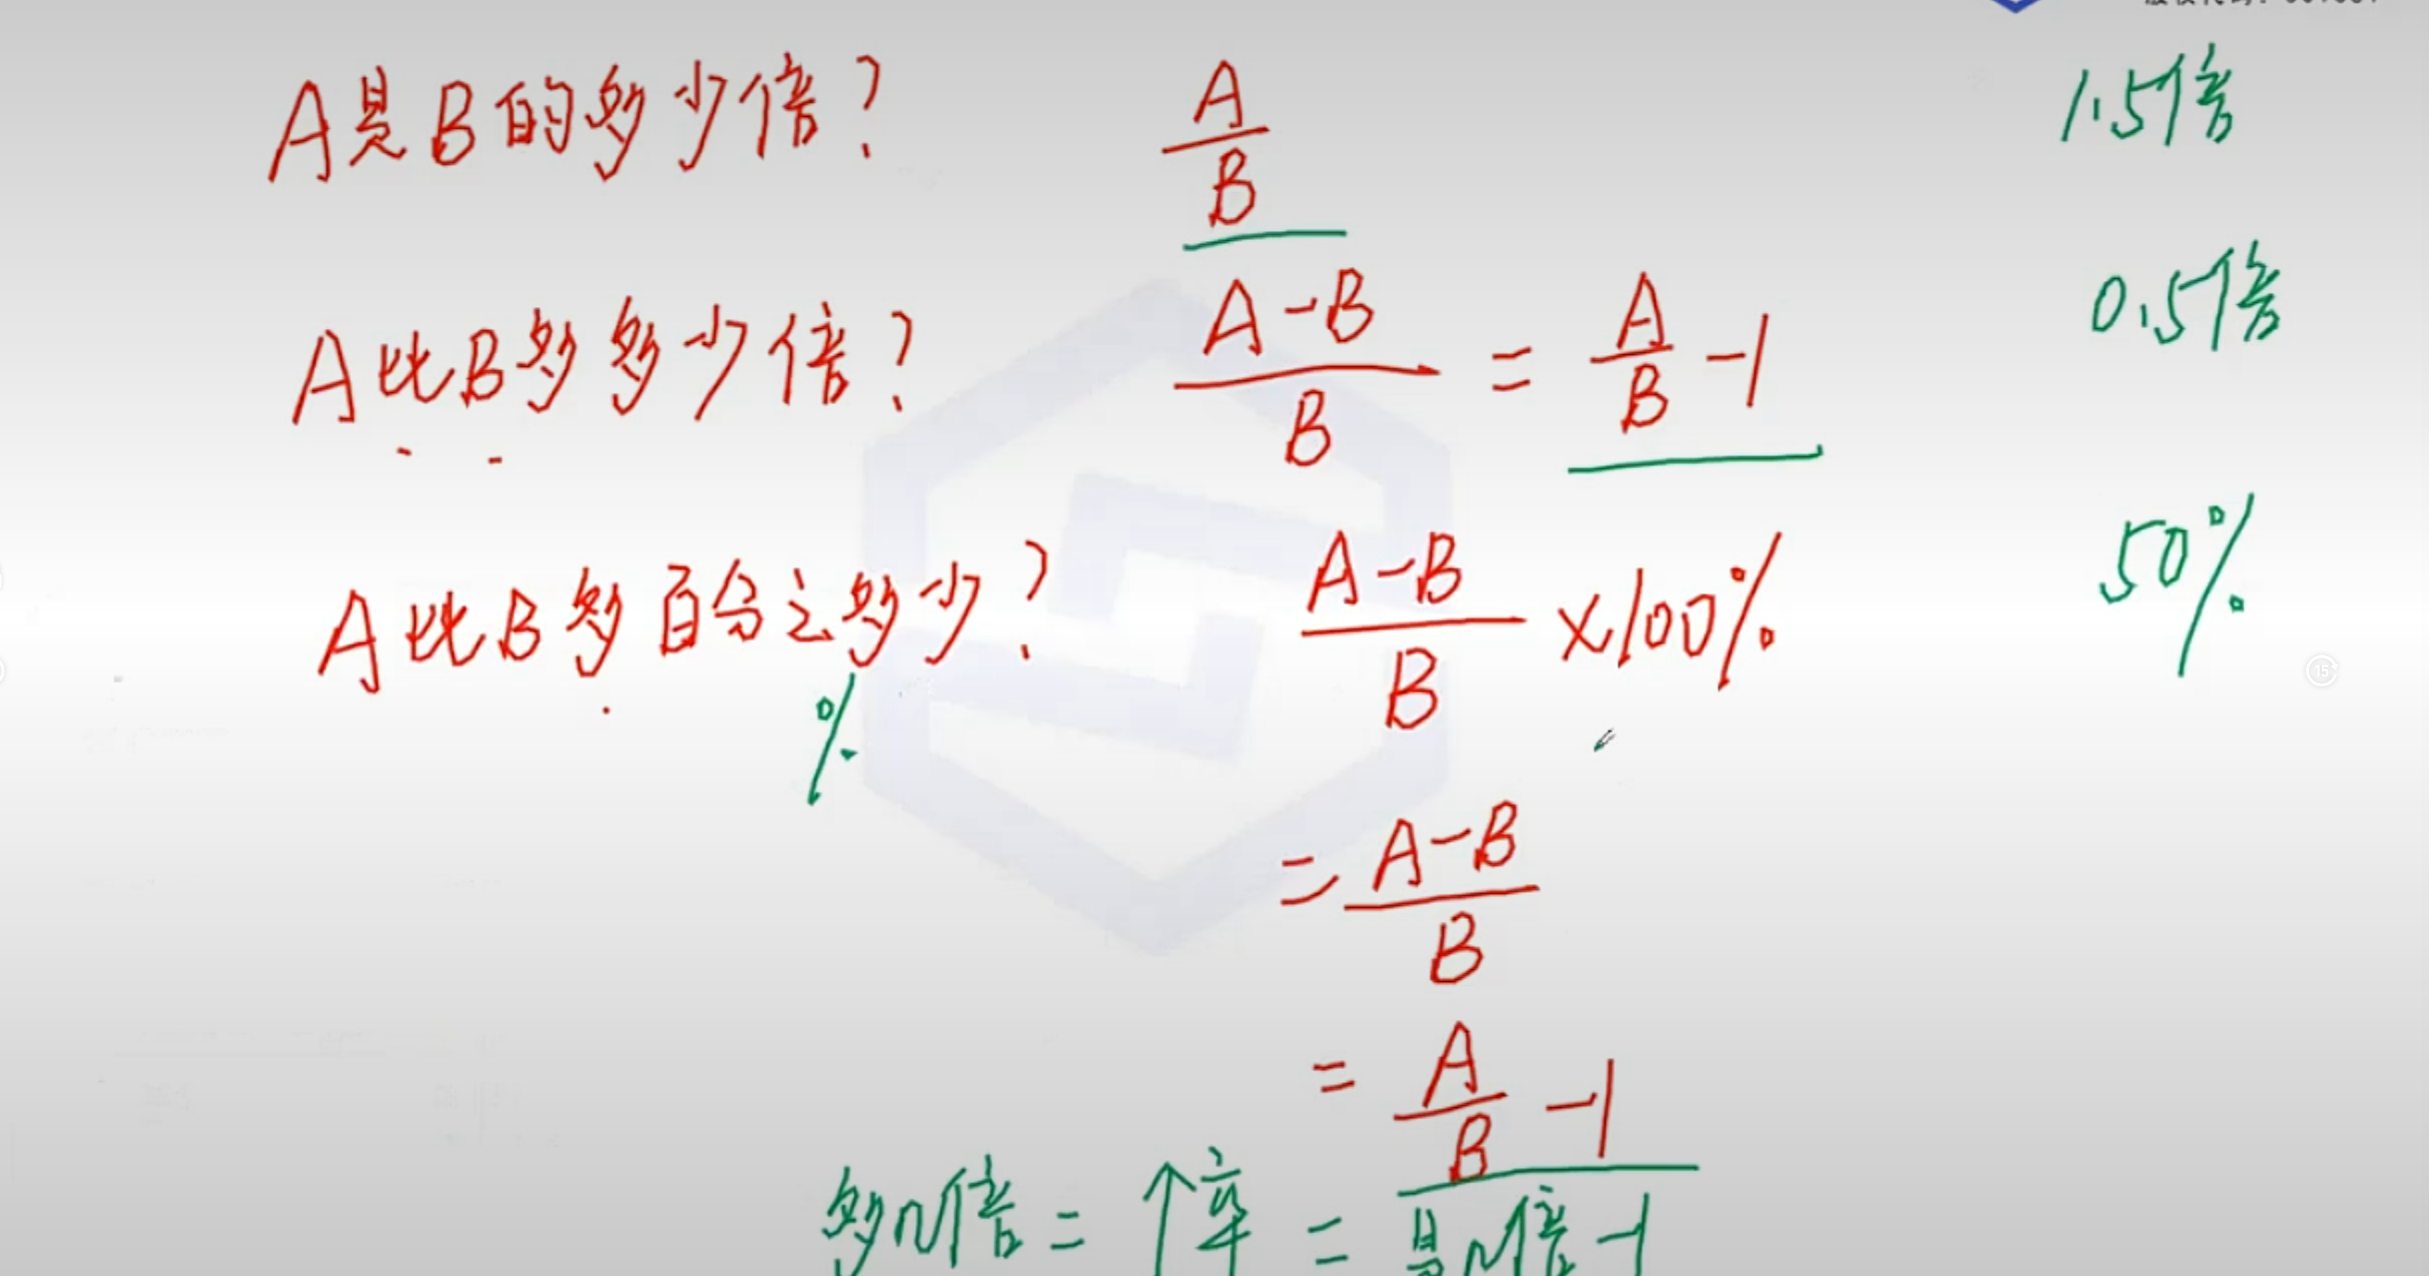 A是B的多少倍? A/B 1.5倍
A比B多多少倍? (A-B)/B = A/B -1 0.5倍
A比B多百分之多少? (A-B)/B ×100% 50%
%
= (A-B)/B
= A/B -1
多n倍 = ↑率 = 是n倍-1
15